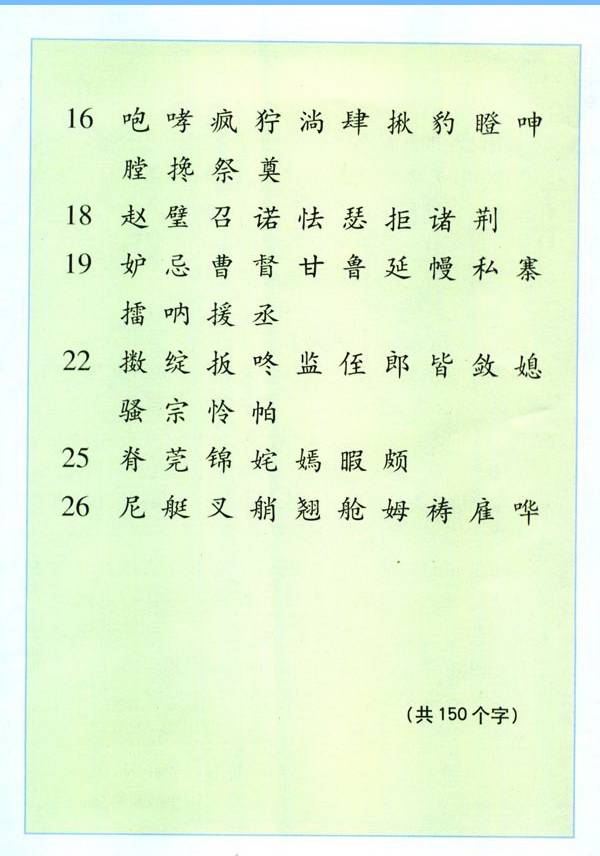 16 咆 哮 疯 狞 淌 肆 揪 豹 瞪 呻
膛 搀 祭 奠
18 赵 璧 召 诺 怯 瑟 拒 诸 荆
19 妒 忌 曹 督 甘 鲁 延 幔 私 寨
擂 呐 援 丞
22 擞 绽 扳 咚 监 侄 郎 皆 敛 媳
骚 宗 怜 帕
25 脊 莞 锦 姹 嫣 暇 颇
26 尼 艇 叉 艄 翘 舱 姆 祷 雇 哗
（共 150 个字）